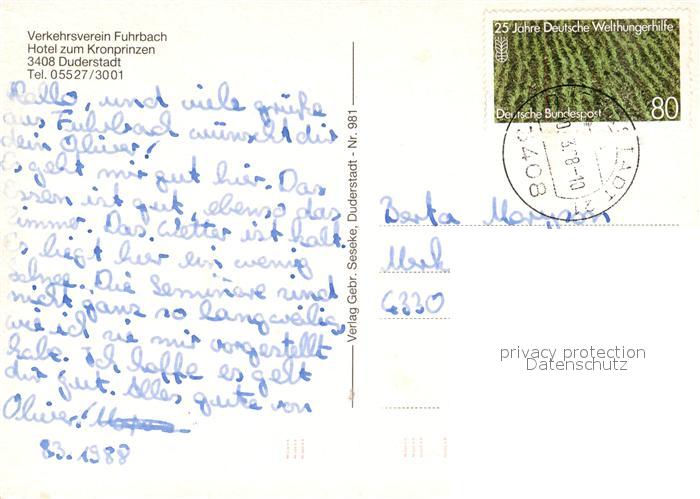 Verkehrsverein Fuhrbach
Hotel zum Kronprinzen
3408 Duderstadt
Tel. 05527/3001
Hallo, und viele grüße
aus Fuhrbach wünscht dir
dein Oliver!
Es geht mir gut hier. Das
Essen ist gut, ebenso das
Zimmer. Das Wetter ist kalt.
Es liegt hier ein wenig
schnee. Die Seminare sind
nicht ganz so langweilig,
wie ich sie mir vorgestellt
habe. Ich hoffe es geht
dir gut. Alles gute von
Oliver!
8.3.1988
Verlag Gebr. Seseke, Duderstadt - Nr. 981
25 Jahre Deutsche Welthungerhilfe
Deutsche Bundespost 80
3408
Berta
4330
privacy protection
Datenschutz